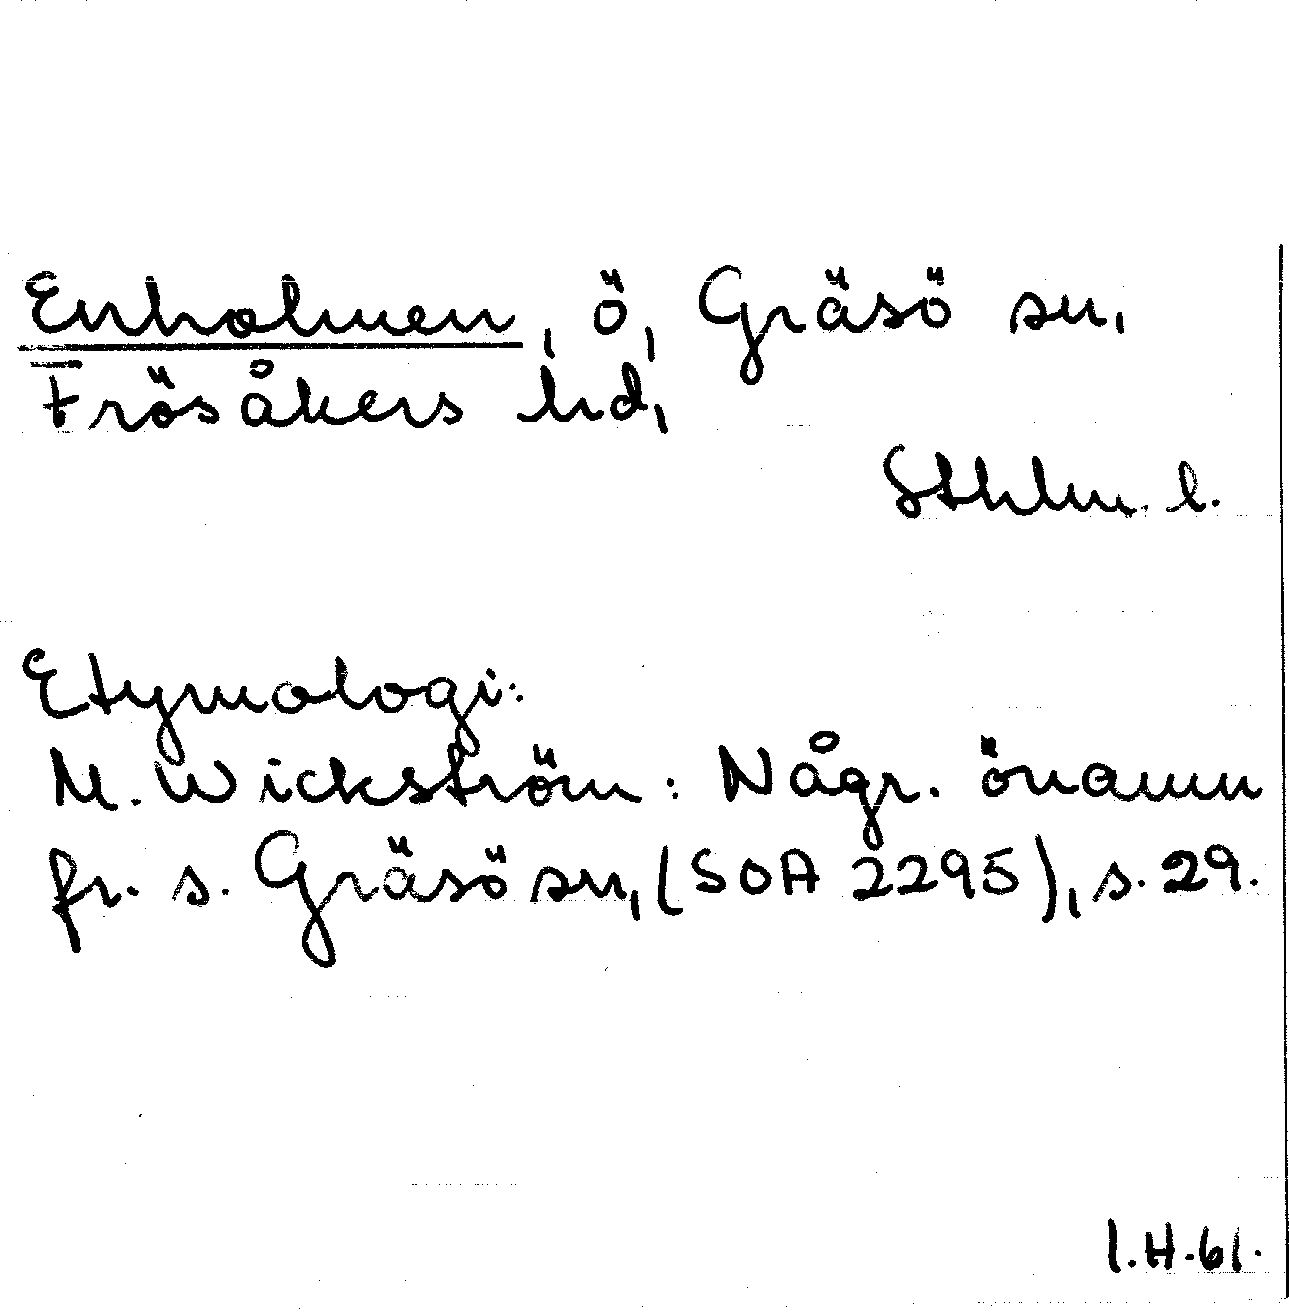 Enholmen, ö, Gräsö sn,
Frösåkers hd,
Sthlm. l.
Etymologi:
M. Wickström: Någr. önamn
fr. s. Gräsö sn, (SOA 2295), s. 29.
I.H.61.